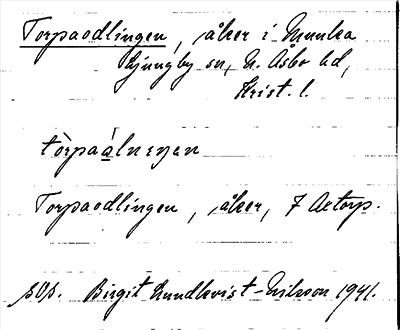 Torpaodlingen, åker i Munka
Ljungby sn, N. Åsbo hd,
Krist. l.
tòrpaálneŋen
Torpaodlingen, åker, 7 Artorp.
sOs. Birgit Lundkvist-Nilsson 1941.